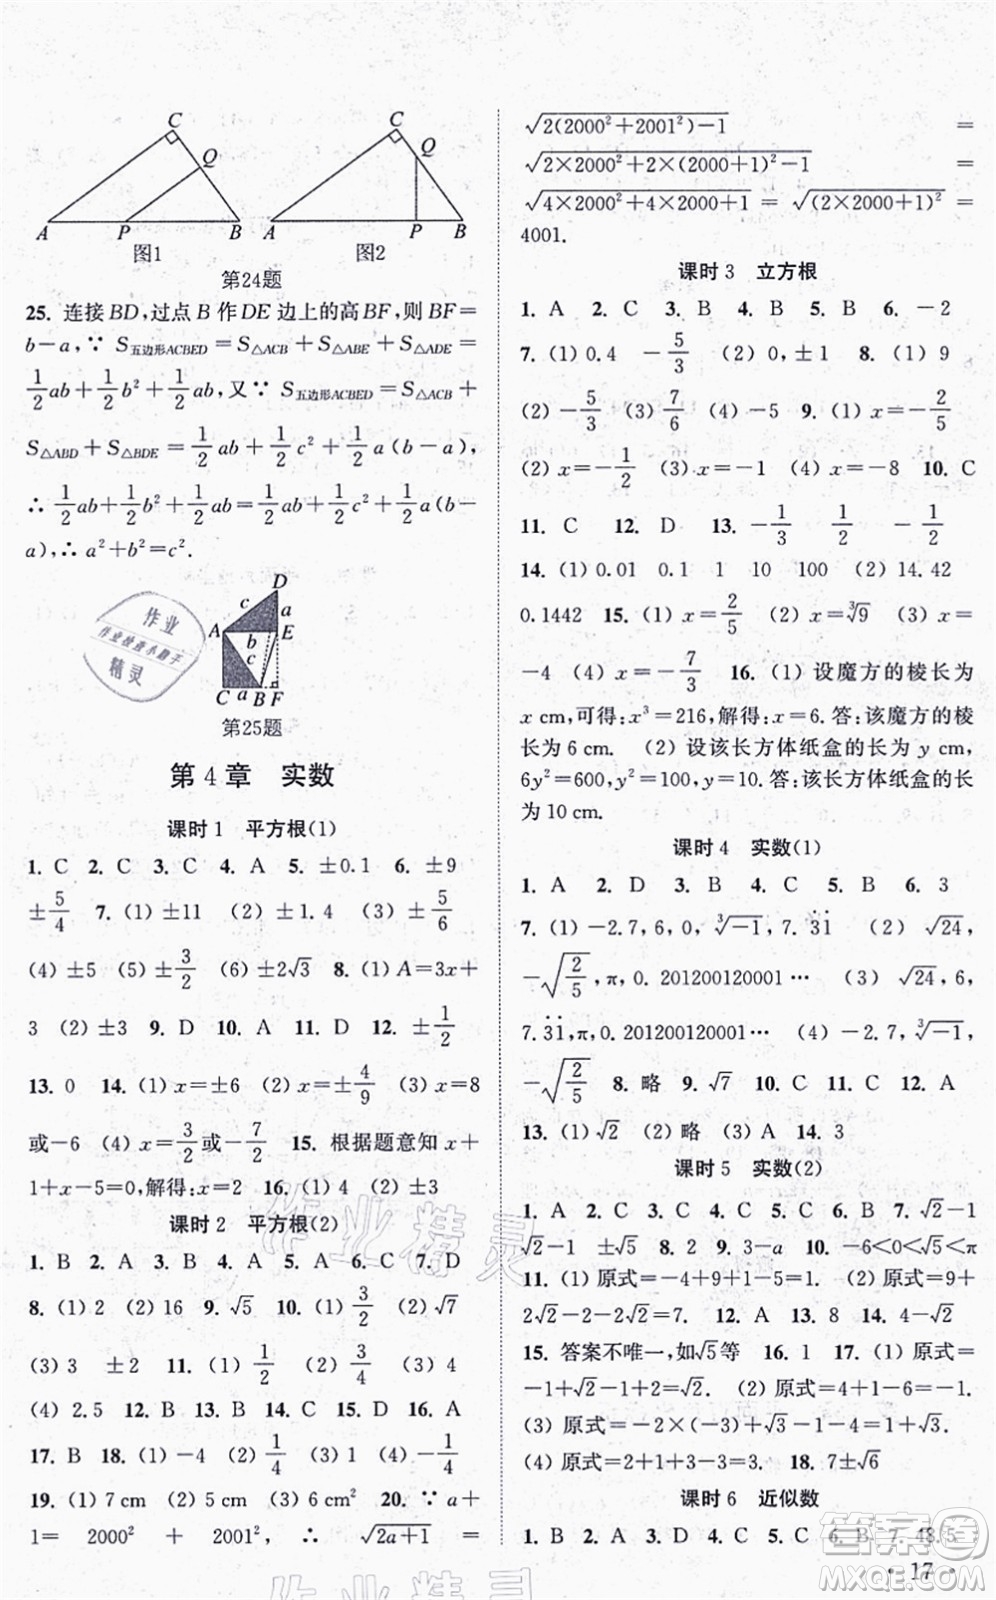 C
Q
A
P
B
图1
C
Q
A
P
B
图2
第24题
25. 连接BD,过点B作DE边上的高BF,则BF=
b-a,∵ S五边形ACBED=S△ACB+S△ABE+S△ADE=
1/2ab+1/2b²+1/2ab,又∵S五边形ACBED=S△ACB+
S△ABD+S△BDE=1/2ab+1/2c²+1/2a(b-a),
∴1/2ab+1/2b²+1/2ab=1/2ab+1/2c²+1/2a(b-
a),∴a²+b²=c².
D
c
a
A
b
E
c
C
a
B
F
第25题
第4章 实数
课时1 平方根(1)
1. C 2. C 3. C 4. A 5. ±0.1 6. ±9
±5/4 7. (1)±11 (2)±1.4 (3)±5/6
(4)±5 (5)±3/2 (6)±2√3 8. (1)A=3x+
3 (2)±3 9. D 10. A 11. D 12. ±1/2
13. 0 14. (1)x=±6 (2)x=±4/9 (3)x=8
或-6 (4)x=3/2或-7/2 15. 根据题意知x+
1+x-5=0,解得:x=2 16. (1)4 (2)±3
课时2 平方根(2)
1. B 2. B 3. B 4. A 5. A 6. C 7. D
8. (1)2 (2)16 9. √5 10. (1)3/2 (2)√7
(3)3 ±2 11. (1)1/2 (2)3/4 (3)4
(4)2.5 12. B 13. B 14. B 15. D 16. A
17. B 18. (1)-4 (2)1/4 (3)1 (4)-1/4
19. (1)7 cm (2)7 cm (3)6 cm² 20. ∵a+
1= 2000² + 2001², ∴ √(2a+1) =
√(2(2000²+2001²)-1) =
√(2×2000²+2×(2000+1)²-1) =
√(4×2000²+4×2000+1) = √((2×2000+1)²) =
4001.
课时3 立方根
1. A 2. C 3. B 4. B 5. B 6. -2
7. (1)0.4 -5/3 (2)0,±1 8. (1)9
(2)-5/3 (3)7/6 (4)-5 9. (1)x=-2/5
(2)x=-1/2 (3)x=-1 (4)x=-8 10. C
11. C 12. D 13. -1/3 1/2 -1/2
14. (1)0.01 0.1 1 10 100 (2)14.42
0.1442 15. (1)x=2/5 (2)x=∛9 (3)x=
-4 (4)x=-7/3 16. (1)设魔方的棱长为
x cm,可得:x³=216,解得:x=6.答:该魔方的棱
长为6 cm. (2)设该长方体纸盒的长为y cm,
6y²=600,y²=100,y=10.答:该长方体纸盒的长
为10 cm.
课时4 实数(1)
1. A 2. D 3. B 4. C 5. B 6. 3
7. (1)-2.7,6,0,∛-1,7.3̇1̇ (2) √24,
-√(2/5),π,0.201200120001… (3) √24,6,
7.3̇1̇,π,0.201200120001… (4)-2.7,∛-1,
-√(2/5) 8. 略 9. √7 10. C 11. C 12. A
13. (1)√2 (2)略 (3)A 14. 3
课时5 实数(2)
1. A 2. C 3. C 4. D 5. C 6. B 7. √2-1
√2-1 ±√5 8. 4 9. 3-a 10. -6<0<√5<π
11. (1)原式=-4+9+1-1=5 (2)原式=9+
2√2-2-2√2=7. 12. A 13. 8 14. 4-√2
15. 答案不唯一,如√5等 16. 1 17. (1)原式=
-1+√2-1+2=√2. (2)原式=-4+4×9-1=-1.
(3)原式=-2×(-3)+√3-1-4=1+√3.
(4)原式=-2+4-3=-1. 18. 7±√6
课时6 近似数
1. B 2. A 3. D 4. B 5. C 6. B 7. 48.5
· 17 ·
作业
作业检查小助手
精灵
作业精灵
作业精灵
答案圈
MXQE.COM